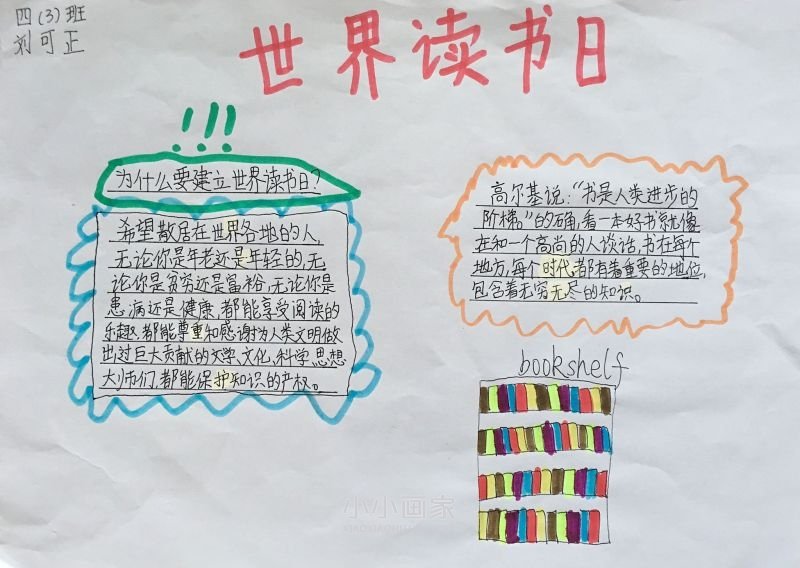 四(3)班
刘可正
世界读书日
!!!
为什么要建立世界读书日?
希望散居在世界各地的人,
无论你是年老还是年轻的,无
论你是贫穷还是富裕,无论你是
患病还是健康,都能享受阅读的
乐趣,都能尊重和感谢为人类文明做
出过巨大贡献的文学、文化、科学思想
大师们,都能保护知识的产权。
高尔基说:“书是人类进步的
阶梯。”的确,看一本好书就像
在和一个高尚的人谈话,书在每个
地方,每个时代都有着重要的地位,
包含着无穷无尽的知识。
bookshelf
小小画家